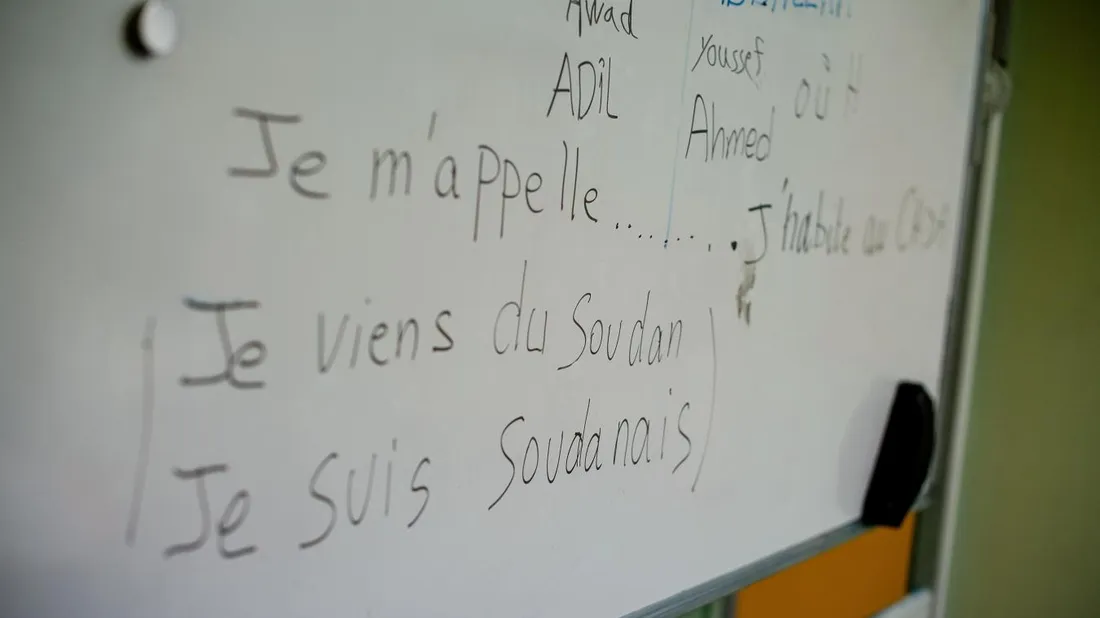 Awad
ADIL
Youssef
Ahmed
où
Je m'appelle ........ J'habite au
Je viens du Soudan
Je suis Soudanais